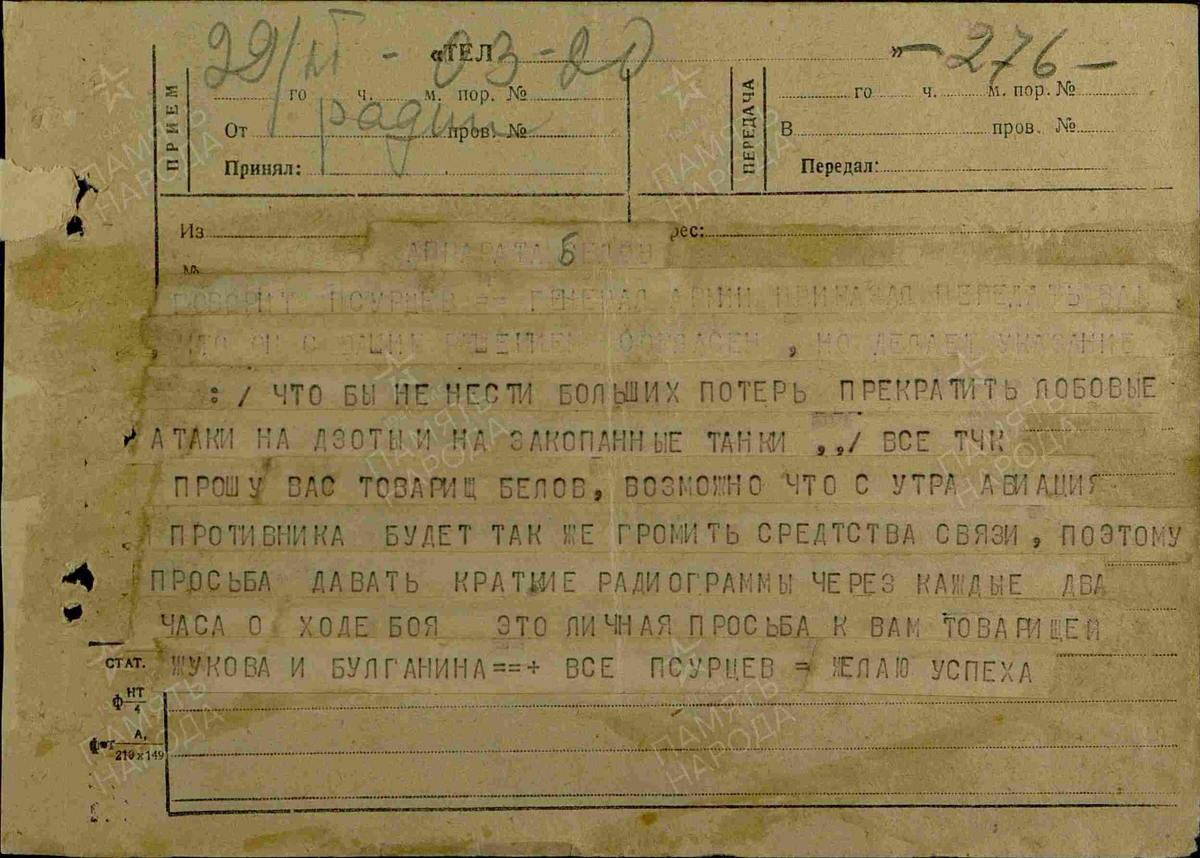 29/XI - 03-20 -276-
«ТЕЛ »
ПРИЕМ
го ч. м. пор. №
От радио пров. №
Принял:
ПЕРЕДАЧА
го ч. м. пор. №
В пров. №
Передал:
Из рес:
№
АППАРАТА БЕЛОВ
ГОВОРИТ ПСУРЦЕВ == ГЕНЕРАЛ АРМИИ ПРИКАЗАЛ ПЕРЕДАТЬ ВАМ
, ЧТО ОН С РЕШЕНИЕМ СОГЛАСЕН , НО ДЕЛАЕТ УКАЗАНИЕ
: / ЧТО БЫ НЕ НЕСТИ БОЛЬШИХ ПОТЕРЬ ПРЕКРАТИТЬ ЛОБОВЫЕ
АТАКИ НА ДЗОТЫ И НА ЗАКОПАННЫЕ ТАНКИ ,,/ ВСЕ ТЧК
ПРОШУ ВАС ТОВАРИЩ БЕЛОВ, ВОЗМОЖНО ЧТО С УТРА АВИАЦИЯ
ПРОТИВНИКА БУДЕТ ТАК ЖЕ ГРОМИТЬ СРЕДТСТВА СВЯЗИ , ПОЭТОМУ
ПРОСЬБА ДАВАТЬ КРАТКИЕ РАДИОГРАММЫ ЧЕРЕЗ КАЖДЫЕ ДВА
ЧАСА О ХОДЕ БОЯ ЭТО ЛИЧНАЯ ПРОСЬБА К ВАМ ТОВАРИЩЕЙ
ЖУКОВА И БУЛГАНИНА==+ ВСЕ ПСУРЦЕВ = ЖЕЛАЮ УСПЕХА
СТАТ.
Ф НТ/4
А, 210х149
ПАМЯТЬ НАРОДА